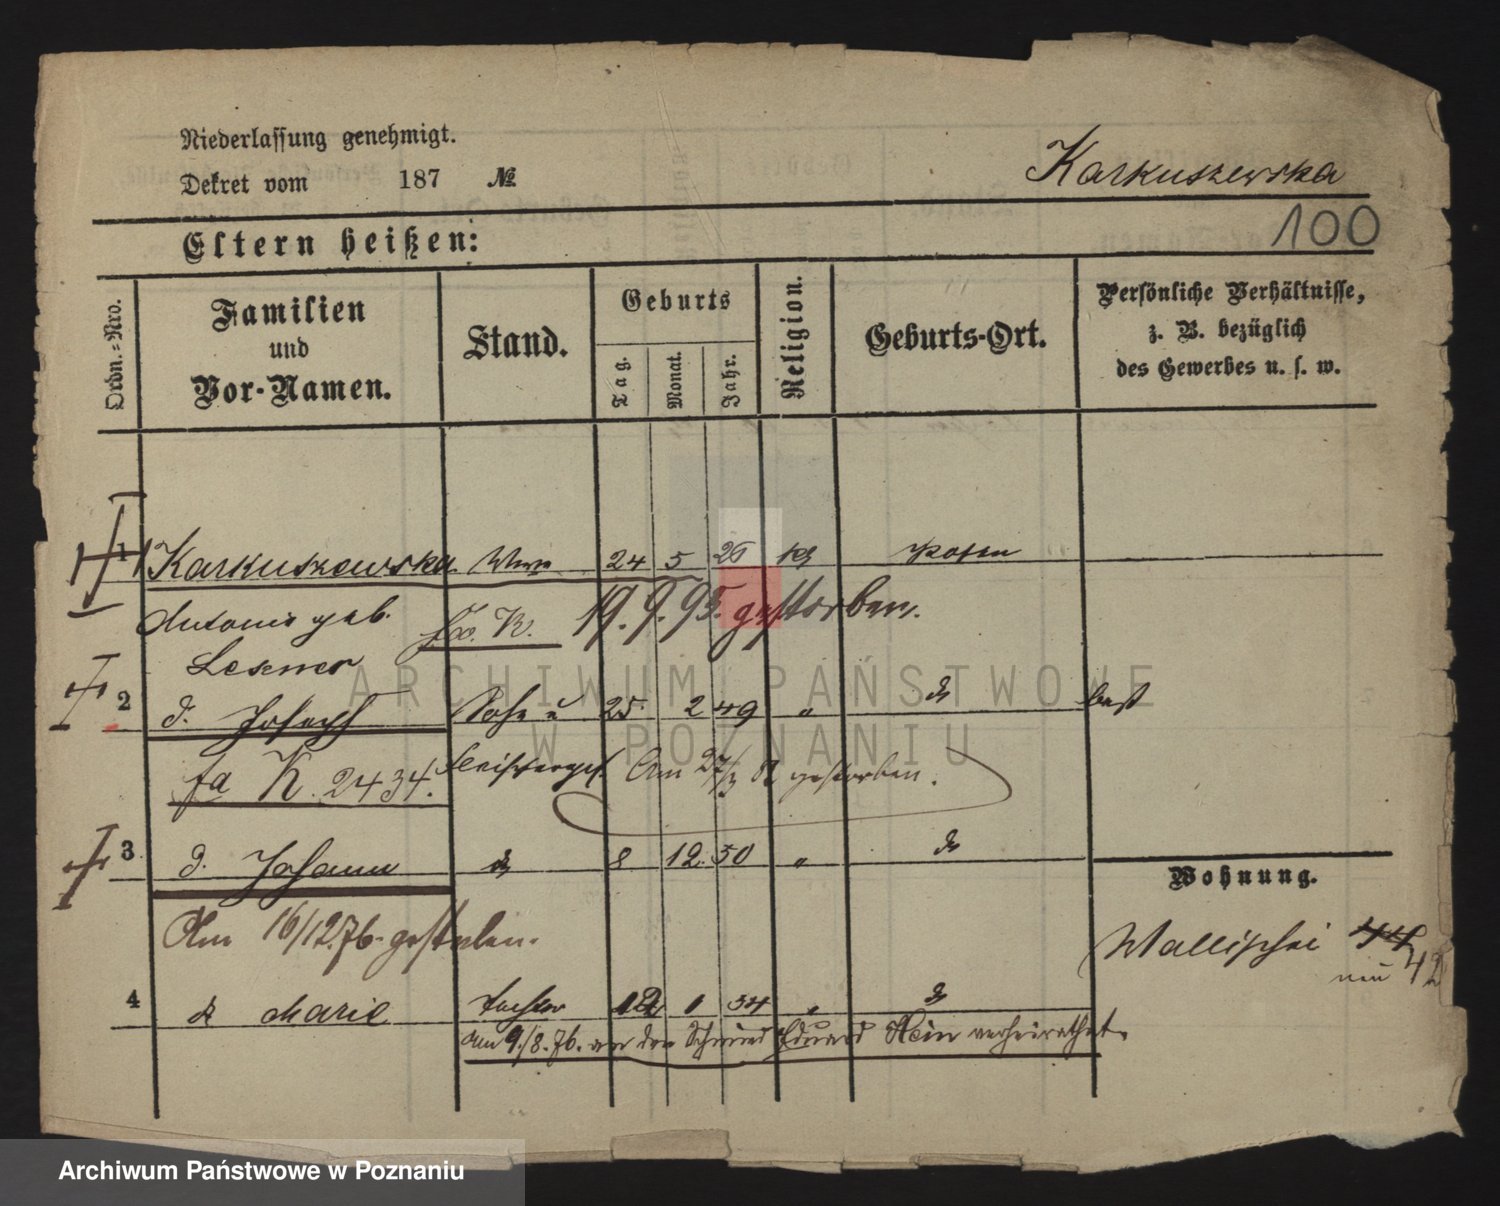 Niederlassung genehmigt.
Dekret vom 187 №
Karkuszewska
100
Eltern heißen:
Ordn.-Nro.
Familien
und
Vor-Namen.
Stand.
Geburts
Tag.
Monat.
Jahr.
Religion.
Geburts-Ort.
Persönliche Verhältnisse,
z. B. bezüglich
des Gewerbes u. s. w.
1 Karkuszewska Wwe 24 5 26 kth Posen
Antonie geb.
19.9.95. gestorben.
2 d. Joseph Sohn 25 2 49 " do
fa K. 2434. Am 27/3 gestorben.
3 d. Johann do 8 12 50 " do
Am 16/12.76. gestorben.
Wohnung.
Wallischei 44
neu 42
4 d Marie Tochter 1 54 " do
am 9./8.76. an den Schmied Eduard Hein verheirathet.
ARCHIWUM PAŃSTWOWE
W POZNANIU
Archiwum Państwowe w Poznaniu